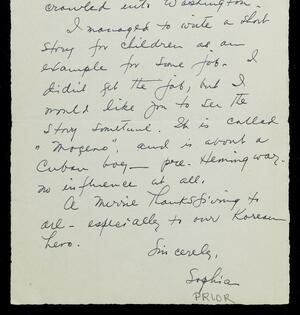 crawled into Washington.
I managed to write a short
story for children as an
example for some job. I
didn't get the job, but I
would like you to see the
story sometime. It is called
"Mogeno", and is about a
Cuban boy – pre-Hemingway,
no influence at all.
A Merrie Thanksgiving to
all – especially to our Korean
hero.
Sincerely,
Sophia
PRIOR